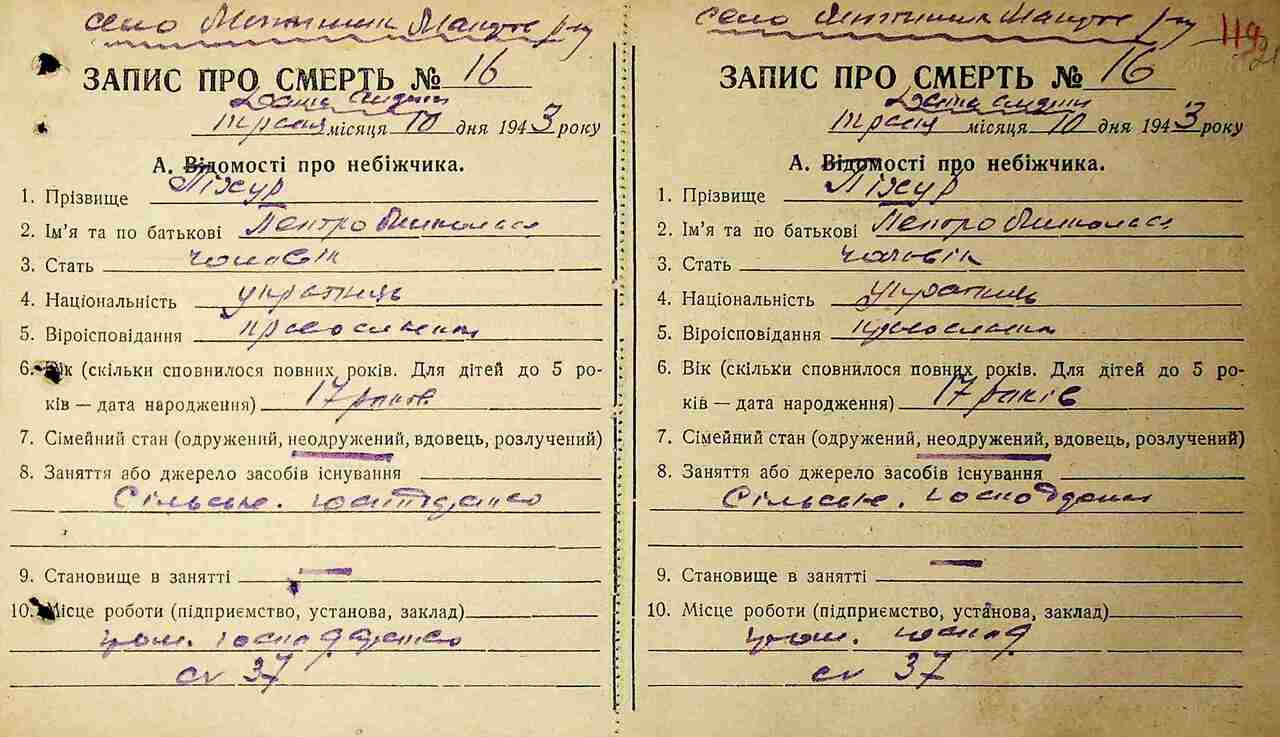 село
ЗАПИС ПРО СМЕРТЬ № 16
травня місяця 10 дня 1943 року
А. Відомості про небіжчика.
1. Прізвище Піхур
2. Ім'я та по батькові Пентро Миколаєв
3. Стать чоловік
4. Національність українець
5. Віроісповідання православний
6. Вік (скільки сповнилося повних років. Для дітей до 5 ро-
ків — дата народження) 17 років
7. Сімейний стан (одружений, неодружений, вдовець, розлучений)
8. Заняття або джерело засобів існування
Сільське. господарство
9. Становище в занятті —
10. Місце роботи (підприємство, установа, заклад)
гром. господарство
37
село
119
ЗАПИС ПРО СМЕРТЬ № 16
травня місяця 10 дня 1943 року
А. Відомості про небіжчика.
1. Прізвище Піхур
2. Ім'я та по батькові Пентро Миколаєв
3. Стать чоловік
4. Національність українець
5. Віроісповідання православний
6. Вік (скільки сповнилося повних років. Для дітей до 5 ро-
ків — дата народження) 17 років
7. Сімейний стан (одружений, неодружений, вдовець, розлучений)
8. Заняття або джерело засобів існування
Сільське. господарство
9. Становище в занятті —
10. Місце роботи (підприємство, установа, заклад)
гром. господ
37